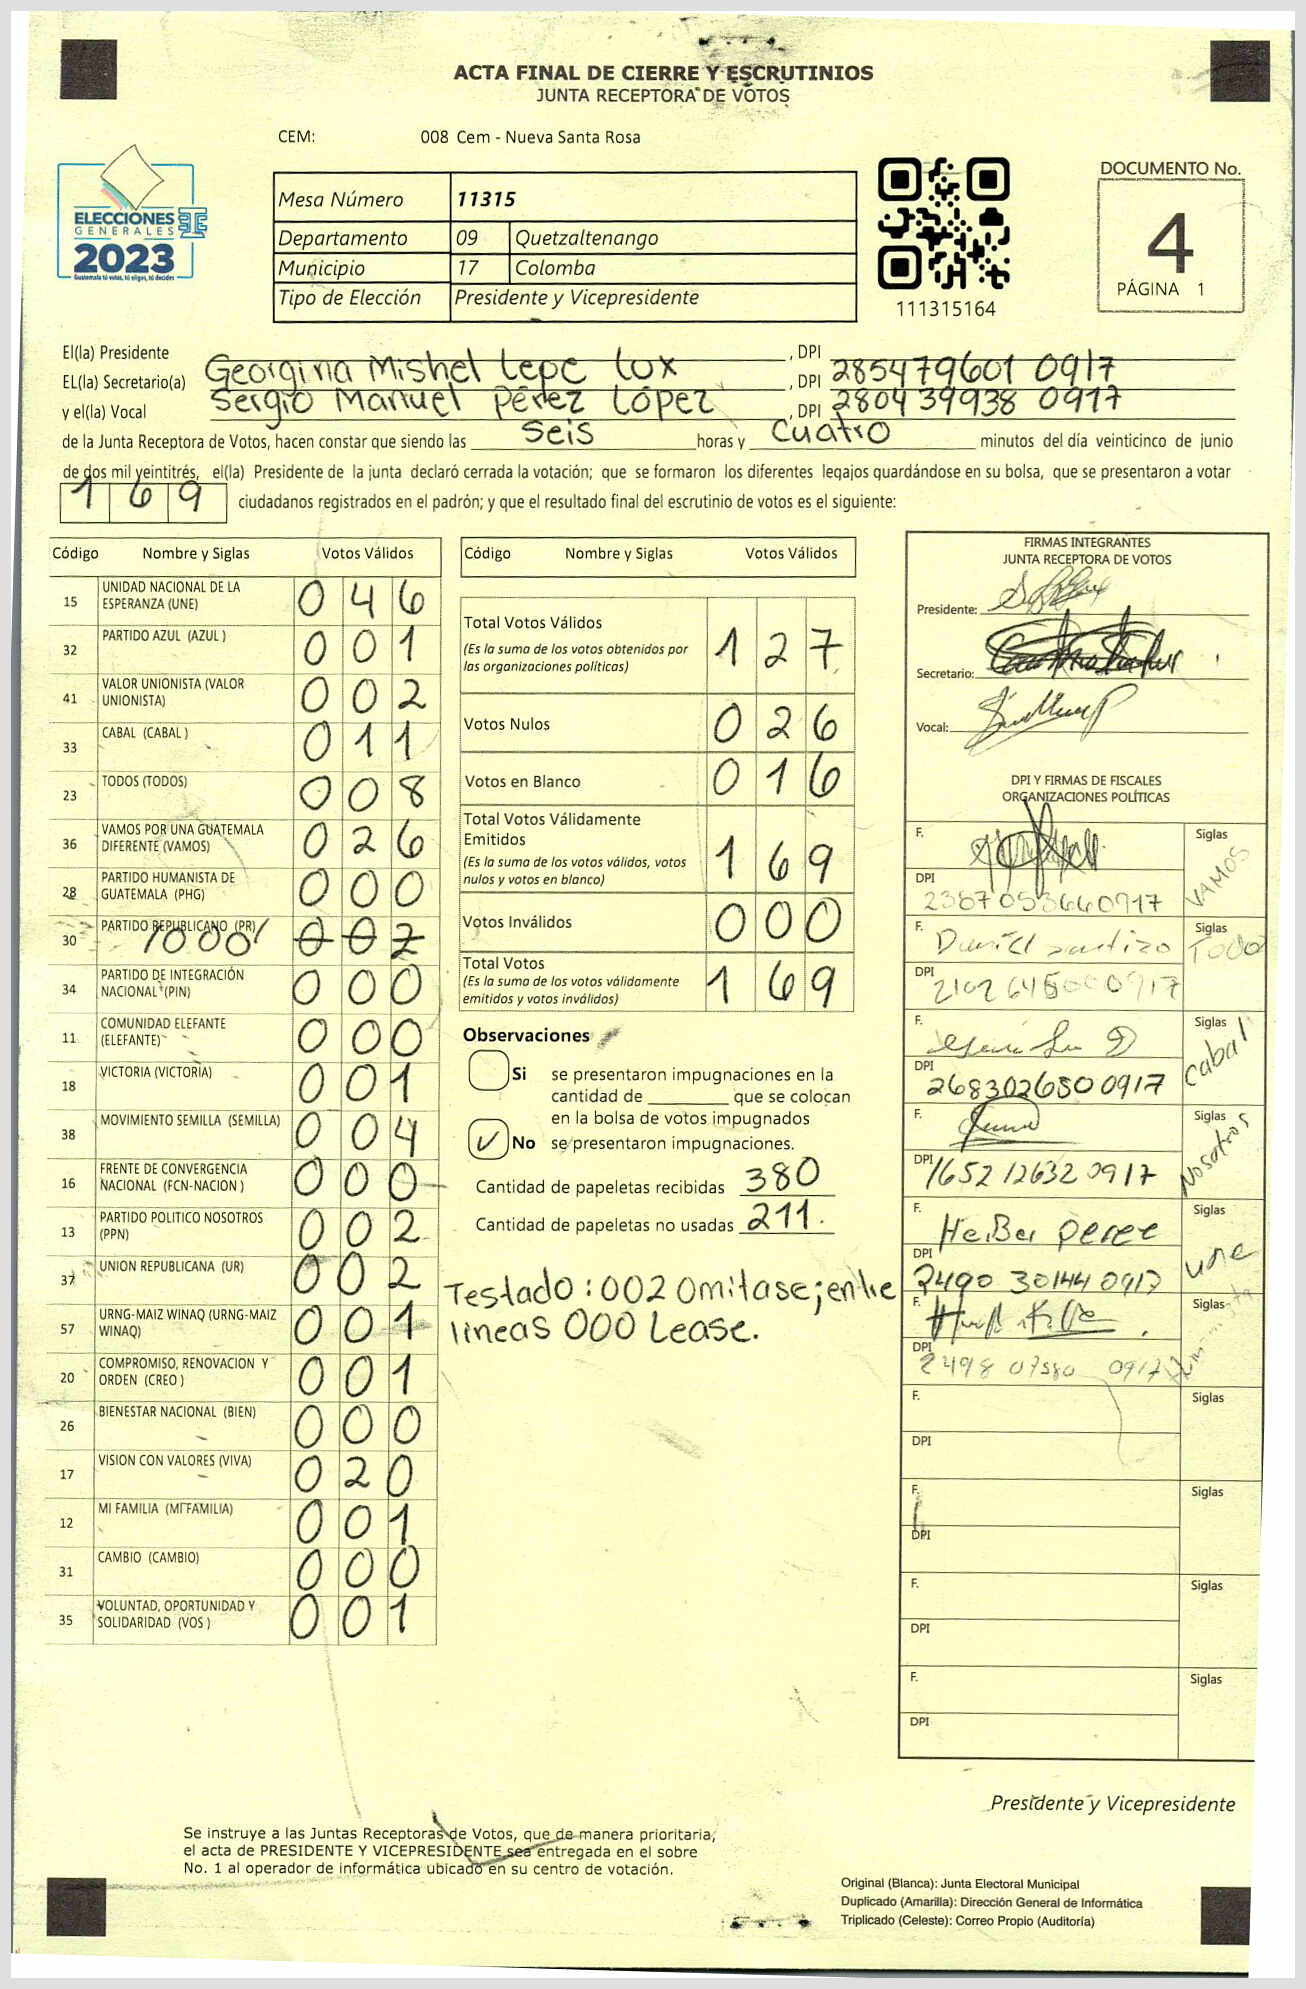 ACTA FINAL DE CIERRE Y ESCRUTINIOS
JUNTA RECEPTORA DE VOTOS
CEM: 008 Cem - Nueva Santa Rosa
ELECCIONES
GENERALES
2023
Guatemala tú votas, tú eliges, tú decides
Mesa Número 11315
Departamento 09 Quetzaltenango
Municipio 17 Colomba
Tipo de Elección Presidente y Vicepresidente
111315164
DOCUMENTO No.
4
PÁGINA 1
El(la) Presidente Georgina Mishel Lepe Lux , DPI 285479601 0917
EL(la) Secretario(a) Sergio Manuel Pérez López , DPI 2804 39938 0917
y el(la) Vocal , DPI
de la Junta Receptora de Votos, hacen constar que siendo las Seis horas y Cuatro minutos del día veinticinco de junio
de dos mil veintitrés, el(la) Presidente de la junta declaró cerrada la votación; que se formaron los diferentes legajos guardándose en su bolsa, que se presentaron a votar
169 ciudadanos registrados en el padrón; y que el resultado final del escrutinio de votos es el siguiente:
Código Nombre y Siglas Votos Válidos
15 UNIDAD NACIONAL DE LA ESPERANZA (UNE) 046
32 PARTIDO AZUL (AZUL ) 001
41 VALOR UNIONISTA (VALOR UNIONISTA) 002
33 CABAL (CABAL ) 011
23 TODOS (TODOS) 008
36 VAMOS POR UNA GUATEMALA DIFERENTE (VAMOS) 026
28 PARTIDO HUMANISTA DE GUATEMALA (PHG) 000
30 PARTIDO REPUBLICANO (PR) /000/ 002
34 PARTIDO DE INTEGRACIÓN NACIONAL (PIN) 000
11 COMUNIDAD ELEFANTE (ELEFANTE) 000
18 VICTORIA (VICTORIA) 001
38 MOVIMIENTO SEMILLA (SEMILLA) 004
16 FRENTE DE CONVERGENCIA NACIONAL (FCN-NACION ) 000
13 PARTIDO POLITICO NOSOTROS (PPN) 002
37 UNION REPUBLICANA (UR) 002
57 URNG-MAIZ WINAQ (URNG-MAIZ WINAQ) 001
20 COMPROMISO, RENOVACION Y ORDEN (CREO ) 001
26 BIENESTAR NACIONAL (BIEN) 000
17 VISION CON VALORES (VIVA) 020
12 MI FAMILIA (MI FAMILIA) 001
31 CAMBIO (CAMBIO) 000
35 VOLUNTAD, OPORTUNIDAD Y SOLIDARIDAD (VOS ) 001
Código Nombre y Siglas Votos Válidos
Total Votos Válidos 127
(Es la suma de los votos obtenidos por
las organizaciones políticas)
Votos Nulos 026
Votos en Blanco 016
Total Votos Válidamente
Emitidos 169
(Es la suma de los votos válidos, votos
nulos y votos en blanco)
Votos Inválidos 000
Total Votos 169
(Es la suma de los votos válidamente
emitidos y votos inválidos)
Observaciones
Si se presentaron impugnaciones en la
cantidad de ________ que se colocan
en la bolsa de votos impugnados
✓ No se presentaron impugnaciones.
Cantidad de papeletas recibidas 380
Cantidad de papeletas no usadas 211.
Testado: 002 Omitase; entre
lineas 000 Lease.
FIRMAS INTEGRANTES
JUNTA RECEPTORA DE VOTOS
Presidente:
Secretario:
Vocal:
DPI Y FIRMAS DE FISCALES
ORGANIZACIONES POLÍTICAS
F. Siglas VAMOS
DPI 2387053660917
F. Siglas Todo
DPI
F. Siglas Cabal
DPI 268302680 0917
F. Siglas Nosotros
DPI 1652 12632 0917
F. Heiber Perez Siglas une
DPI 2490 30144 0917
F. Siglas
DPI 2498 07580 0917
F. Siglas
DPI
F. Siglas
DPI
F. Siglas
DPI
F. Siglas
DPI
Presidente y Vicepresidente
Se instruye a las Juntas Receptoras de Votos, que de manera prioritaria,
el acta de PRESIDENTE Y VICEPRESIDENTE sea entregada en el sobre
No. 1 al operador de informática ubicado en su centro de votación.
Original (Blanca): Junta Electoral Municipal
Duplicado (Amarilla): Dirección General de Informática
Triplicado (Celeste): Correo Propio (Auditoría)